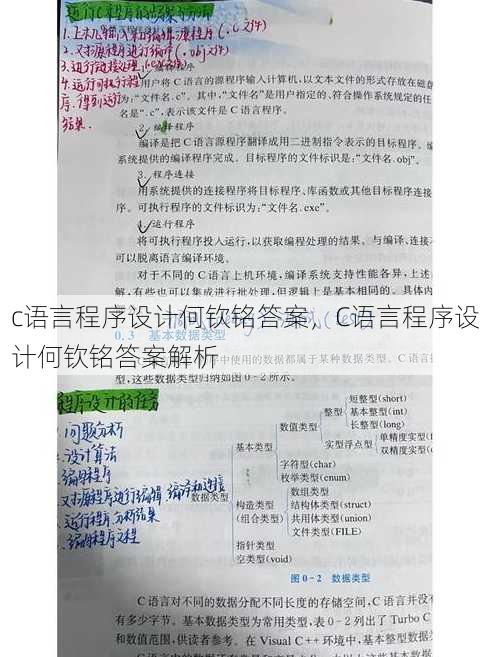 运行C程序的步骤与方法
1.上机输入与编辑源程序(.c文件)
2.对源程序进行编译(.obj文件)
3.进行连接处理(.exe文件)
4.运行可执行程
序,得到运行
结果.
用户将C语言的源程序输入计算机,以文本文件的形式存放在磁盘
为:“文件名.c”。其中,“文件名”是用户指定的、符合操作系统规定的任
名是“.c”,表示该文件是C语言程序。
2.编译程序
编译是把C语言源程序翻译成用二进制指令表示的目标程序。编
系统提供的编译程序完成。目标程序的文件标识是:“文件名.obj”。
3.程序连接
用系统提供的连接程序将目标程序、库函数或其他目标程序连接
序。可执行程序的文件标识为:“文件名.exe”。
4.运行程序
将可执行程序投入运行,以获取编程处理的结果。与编译、连接不
可以脱离语言编译环境。
对于不同的C语言上机环境,编译系统支持性能各异,上述
解,有些也可以集成进行批处理,但逻辑上是基本相同的。具体内
c语言程序设计何钦铭答案,C语言程序设
计何钦铭答案解析
0.3 基本数据类型
中使用的数据都属于某种数据类型。C语言
型,这些数据类型归纳如图0-2所示。
程序设计的任务
问题分析
设计算法
编写程序
对源程序进行编辑、编译和连接
运行程序,分析结果
编写程序文档
数据类型
基本类型
数值类型
整型
短整型(short)
基本整型(int)
长整型(long)
实型浮点型
单精度实型(f
双精度实型(
字符型(char)
枚举类型(enum)
构造类型
(组合类型)
数组类型
结构体类型(struct)
共用体类型(union)
文件类型(FILE)
指针类型
空类型(void)
图0-2 数据类型
C语言对不同的数据分配不同长度的存储空间,C语言并没
有多少字节。基本数据类型为常用类型,表0-2列出了Turbo C
和数值范围,供读者参考。在Visual C++环境中,基本整型数据